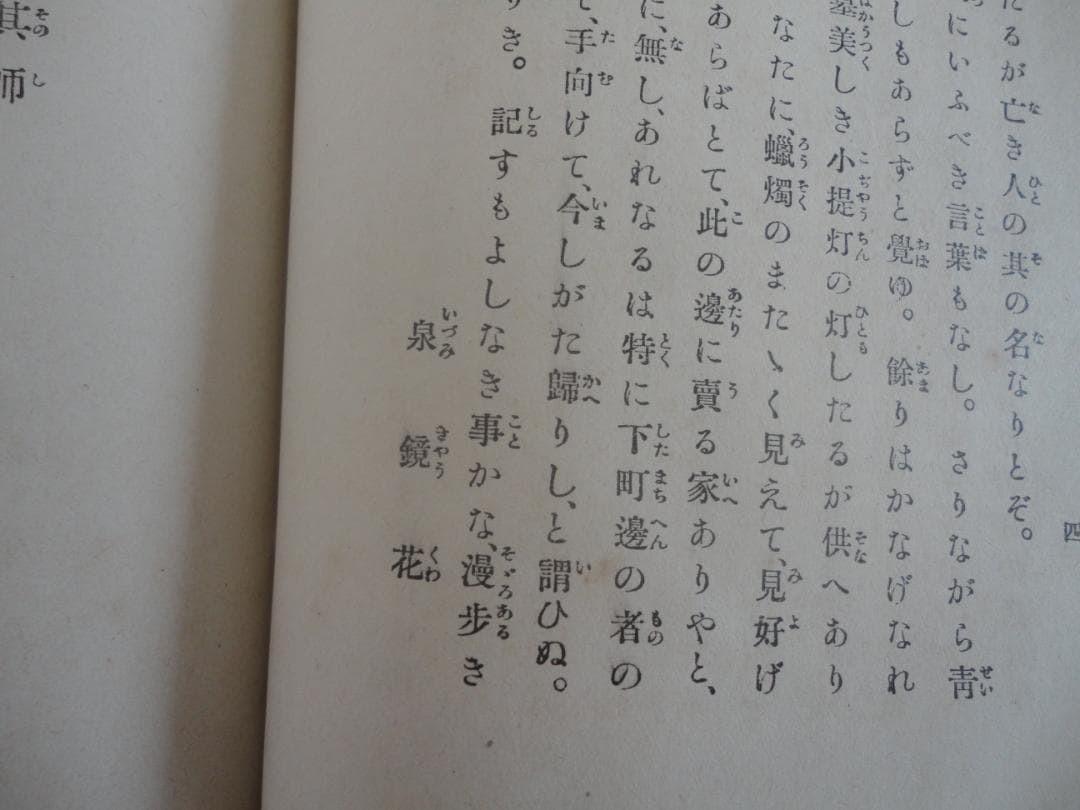 四
たるが亡き人の其の名なりとぞ。
にいふべき言葉もなし。さりながら靑
しもあらずと覺ゆ。餘りはかなげなれ
墓美しき小提灯の灯したるが供へあり
なたに、蠟燭のまたゝく見えて、見好げ
あらばとて、此の邊に賣る家ありやと、
に、無し、あれなるは特に下町邊の者の
て、手向けて、今しがた歸りし、と謂ひぬ。
りき。記すもよしなき事かな、漫歩き
泉鏡花
其師